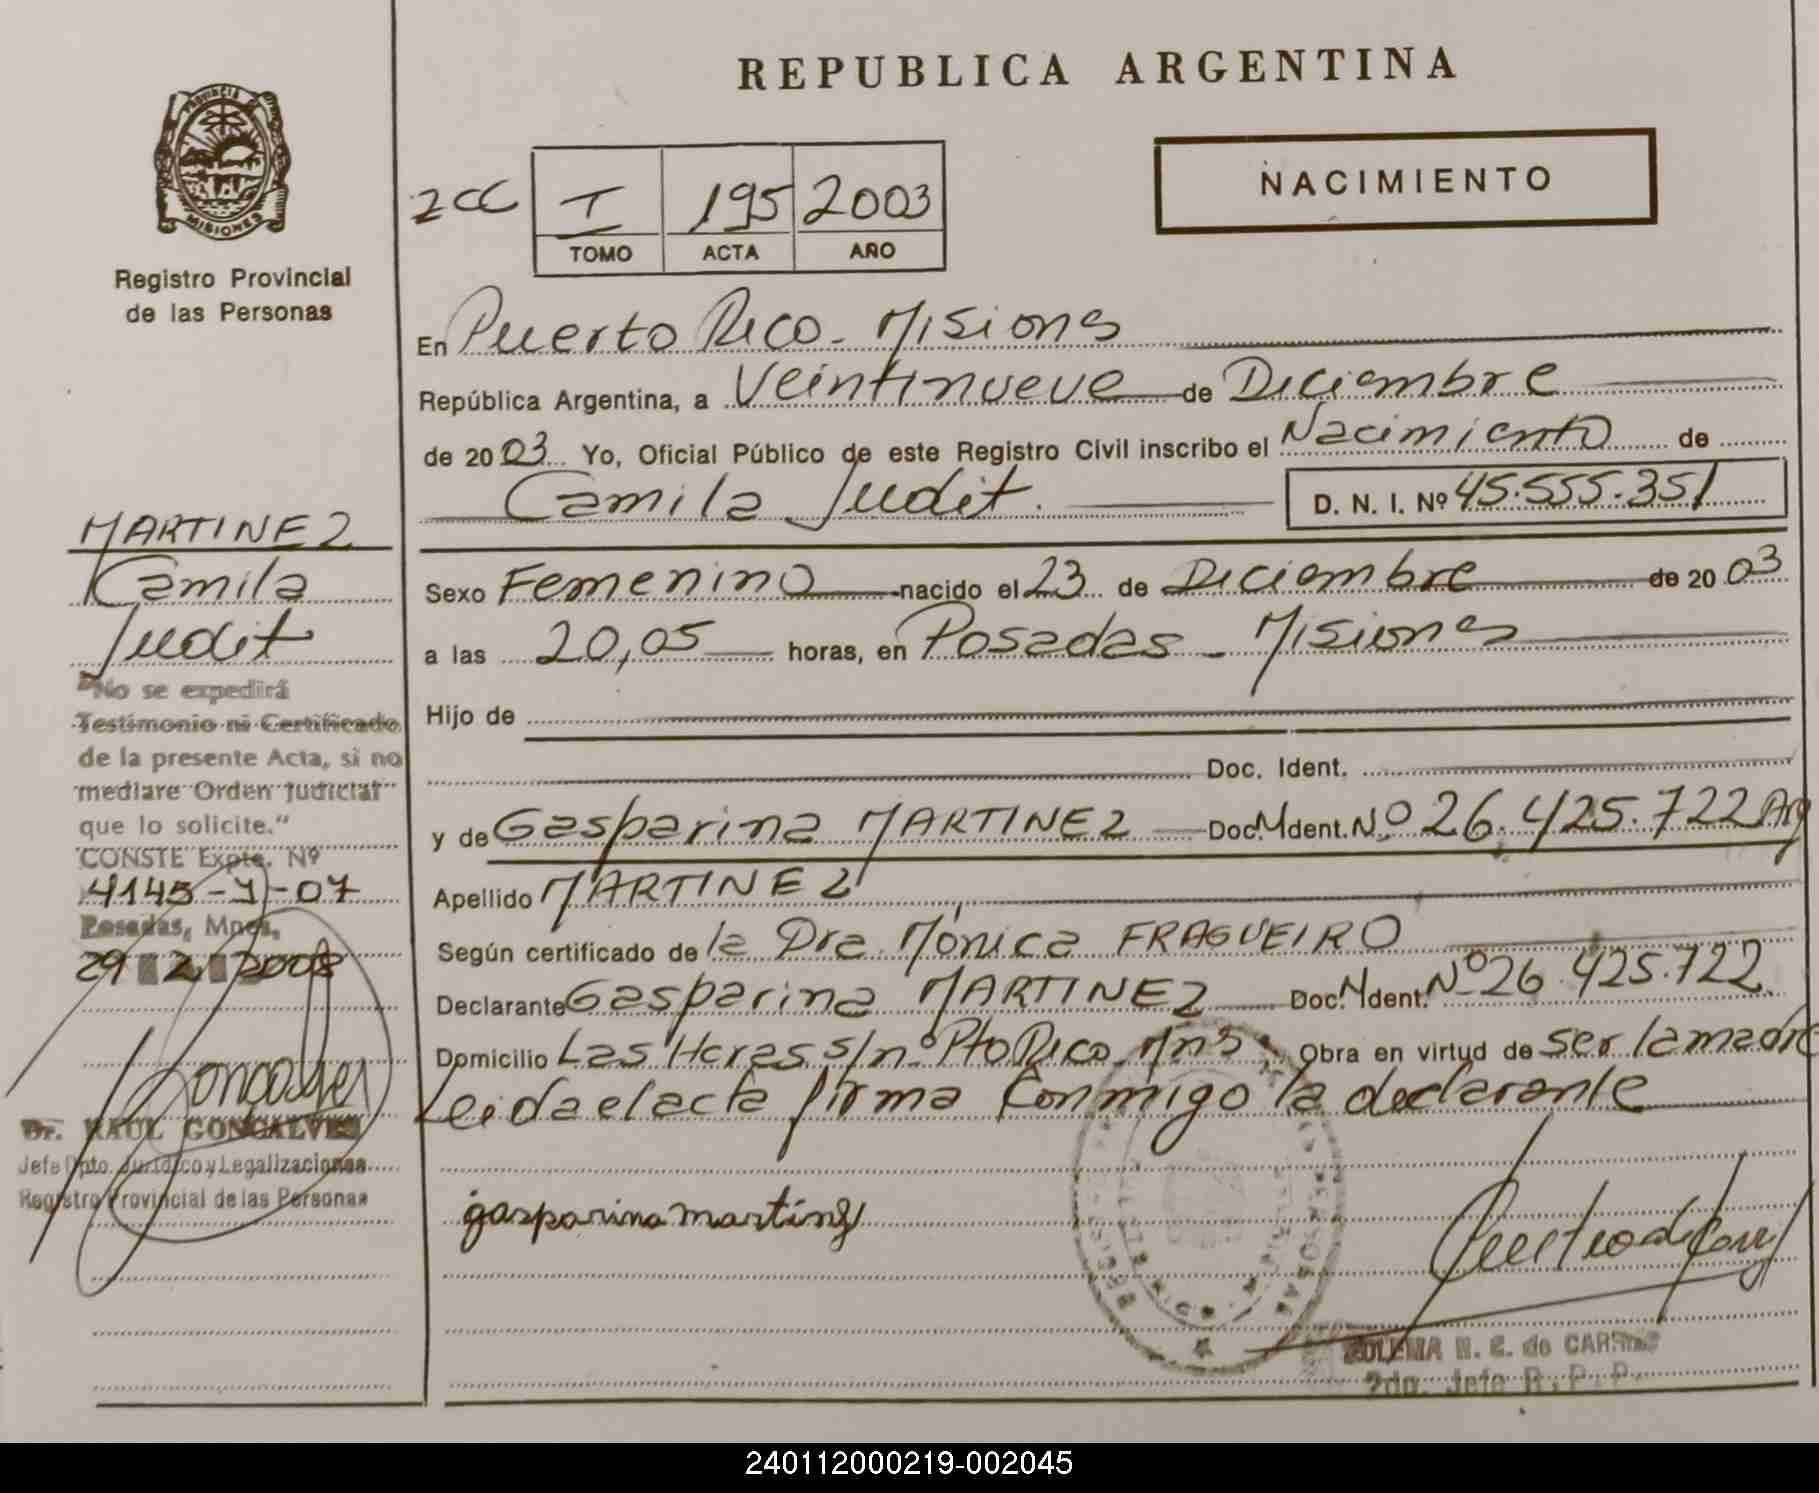 REPUBLICA ARGENTINA
PROVINCIA DE
MISIONES
Registro Provincial
de las Personas
2CC I 195 2003
TOMO ACTA AÑO
NACIMIENTO
En Puerto Rico - Misiones
República Argentina, a Veintinueve de Diciembre
de 2003 Yo, Oficial Público de este Registro Civil inscribo el Nacimiento de
Camila Judit. D. N. I. Nº 45.555.351
Sexo Femenino nacido el 23 de Diciembre de 2003
a las 20,05 horas, en Posadas - Misiones
Hijo de
Doc. Ident.
y de Gasparina MARTINEZ Doc. Ident. Nº 26.425.722 Arg
Apellido MARTINEZ
Según certificado de la Dra. Mónica FRAGUEIRO
Declarante Gasparina MARTINEZ Doc. Ident. Nº 26.425.722
Domicilio Las Heras s/nº Pto Rico Mns. Obra en virtud de ser la madre
Leida el acta firma conmigo la declarante
gasparina martinez
N. E. de
2do. Jefe R. P. P.
MARTINEZ
Camila
Judit
"No se expedirá
Testimonio ni Certificado
de la presente Acta, si no
mediare Orden Judicial
que lo solicite."
CONSTE Expte. Nº
4145-Y-07
Posadas, Mnes,
29 2 2008
Goncalves
Dr. RAUL GONCALVES
Jefe Dpto. Jurídico y Legalizaciones
Registro Provincial de las Personas
240112000219-002045